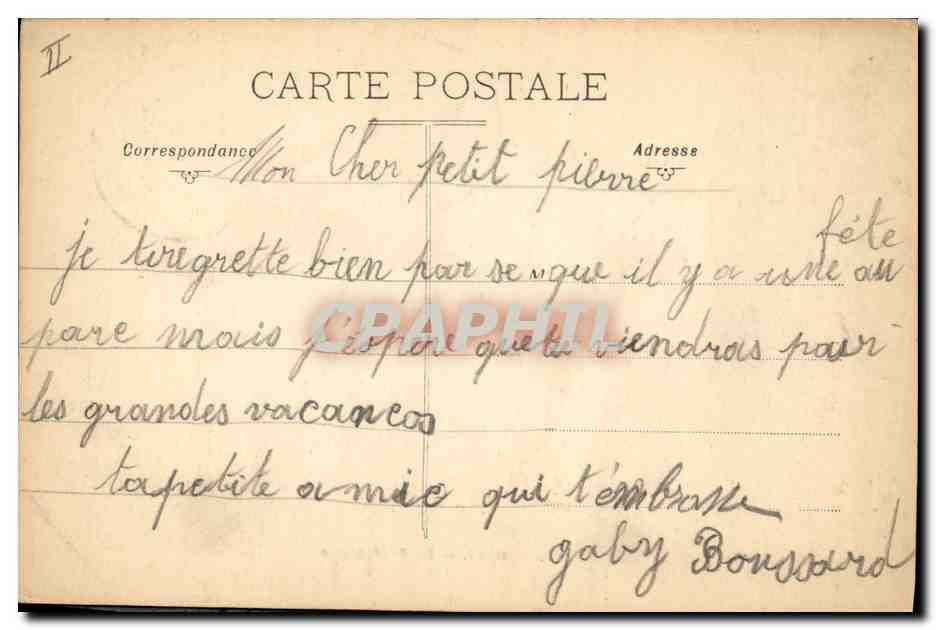 II
CARTE POSTALE
Correspondance
Adresse
Mon Cher petit pierre
je tregrette bien par se que il y a une féte au
parc mais j'éspére que tu viendras pour
les grandes vacances
ta petite amie qui t'émbrasse
gaby Boussard
CPAPHIL